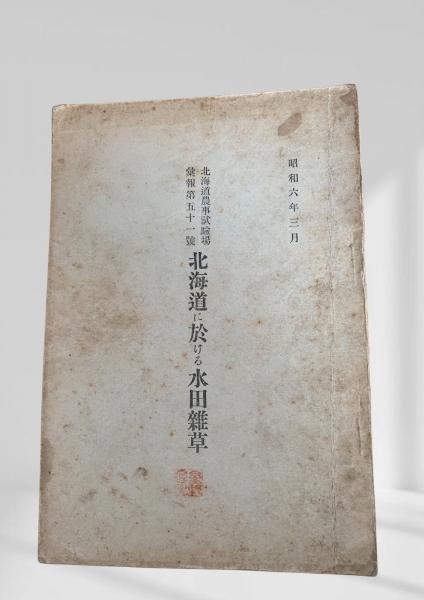 昭和六年三月
北海道農事試驗場
彙報第五十一號
北海道に於ける水田雑草